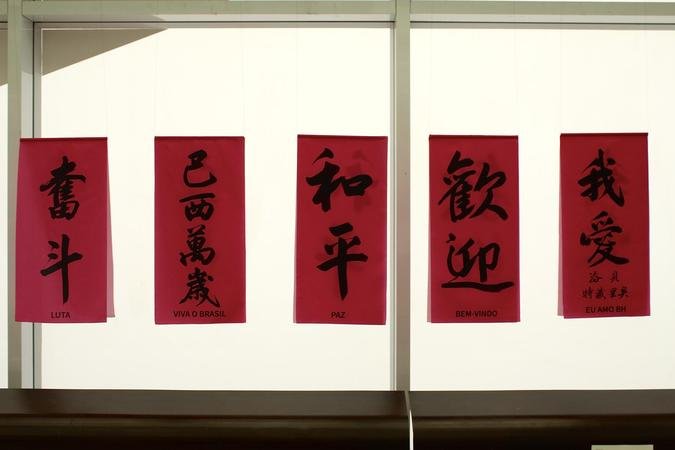 奮斗
LUTA
巴西萬歲
VIVA O BRASIL
和平
PAZ
歡迎
BEM-VINDO
我愛
EU AMO BH